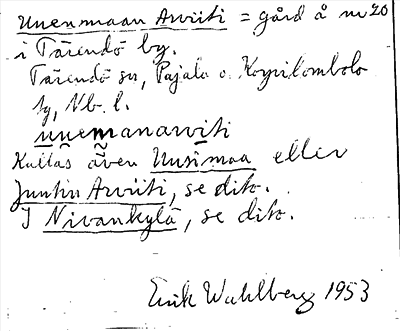 Unenmaan Arviiti = gård å nr 20
i Tärendö by.
Tärendö sn, Pajala o. Korpilombolo
tg, Nb. l.
unemanarviti
Kallas även Uusimaa eller
Juntin Arviiti, se dito.
I Nivankylä, se dito.
Erik Wahlberg 1953